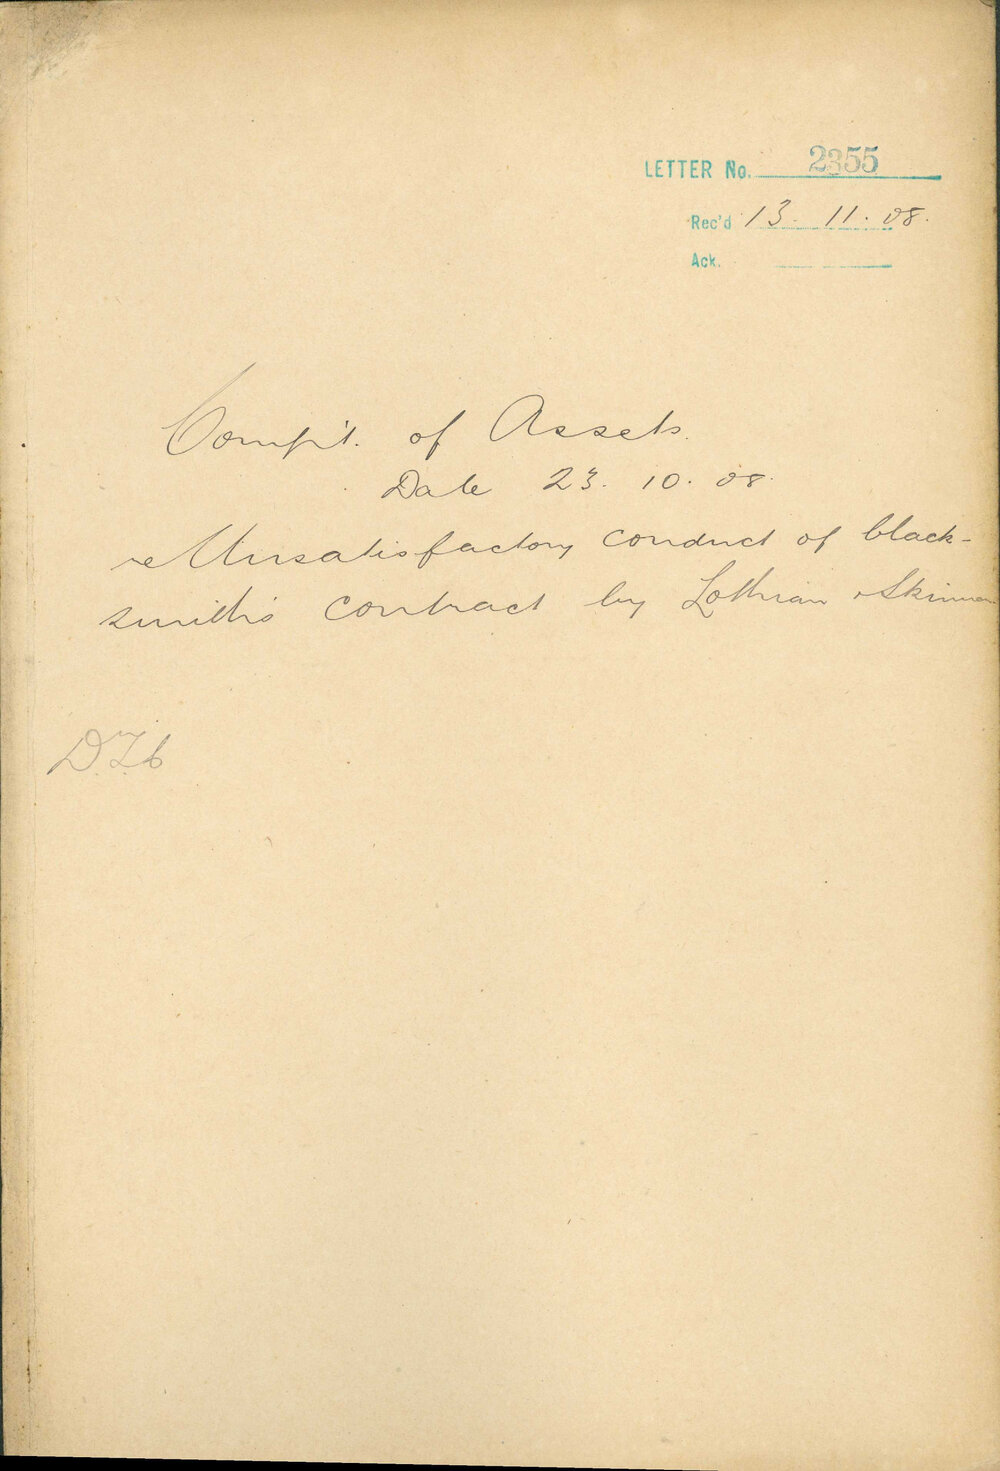 LETTER No. 2355
Rec'd 13. 11. 08.
Ack.
Comp't. of Assets.
Date 23. 10. 08.
re Unsatisfactory conduct of black-
smith's contract by Lothian & Skinner
D.T.6